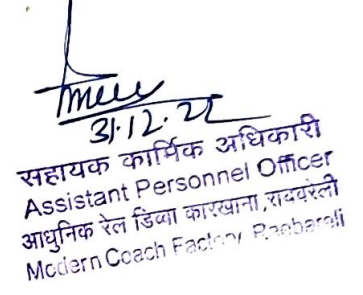 31.12.22
सहायक कार्मिक अधिकारी
Assistant Personnel Officer
आधुनिक रेल डिब्बा कारखाना, रायबरेली
Modern Coach Factory Raebareli